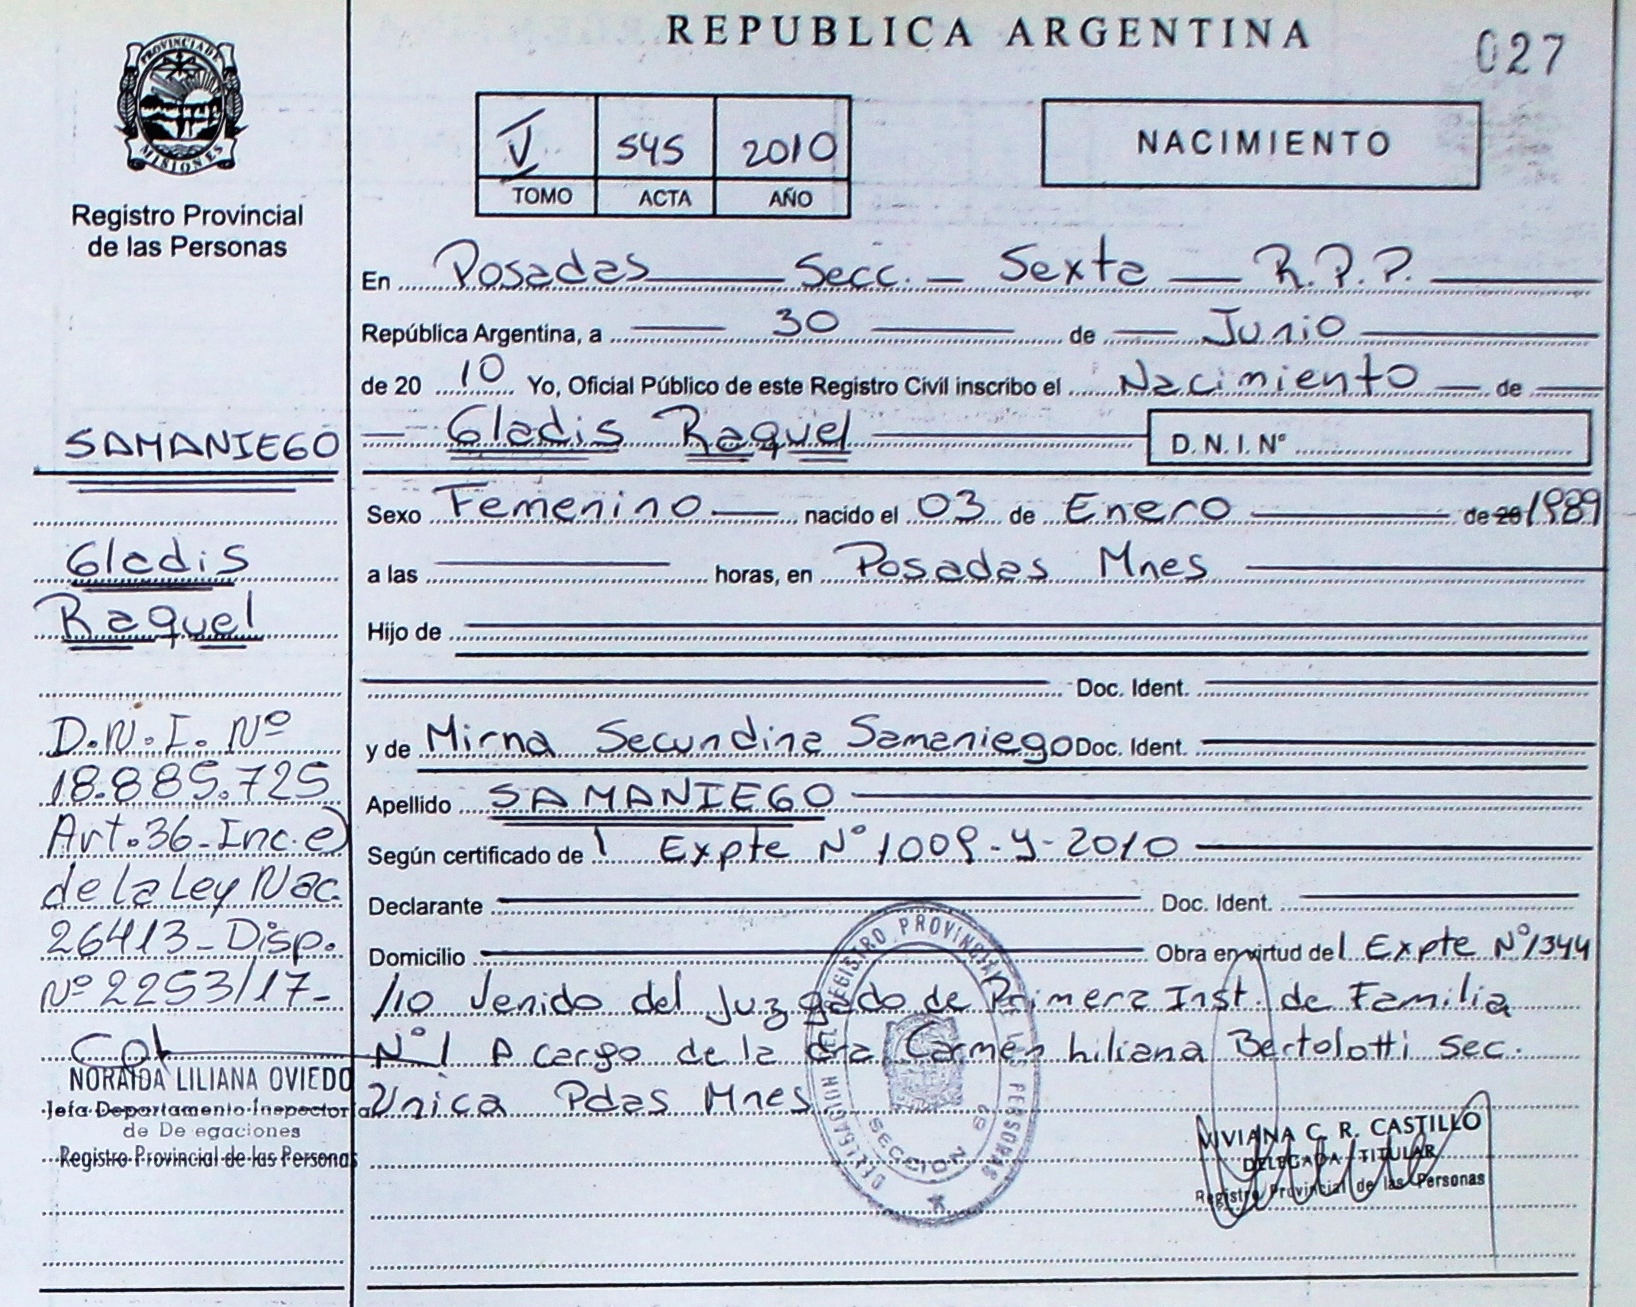 REPUBLICA ARGENTINA
027
PROVINCIA DE
MISIONES
Registro Provincial
de las Personas
V 545 2010
TOMO ACTA AÑO
NACIMIENTO
En Posadas Secc. Sexta R.P.P.
República Argentina, a 30 de Junio
de 20 10 Yo, Oficial Público de este Registro Civil inscribo el Nacimiento de
Gladis Raquel D.N.I. Nº
Sexo Femenino nacido el 03 de Enero de 20 1989
a las horas, en Posadas Mnes
Hijo de
Doc. Ident.
y de Mirna Secundina Samaniego Doc. Ident.
Apellido SAMANIEGO
Según certificado de l Expte Nº 1009-Y-2010
Declarante Doc. Ident.
Domicilio Obra en virtud del Expte Nº 1344
/10 Venido del Juzgado de Primera Inst. de Familia
Nº 1 A cargo de la dra. Carmen Liliana Bertolotti sec.
Unica Pdas Mnes
SAMANIEGO
Gladis
Raquel
D.N.I. Nº
18.885.725
Art.36-Inc.e)
de la Ley Nac.
26413-Disp.
Nº 2253/17-
NORAIDA LILIANA OVIEDO
Jefa Departamento Inspectoria
de De egaciones
Registro Provincial de las Personas
DELEGACION DEL REGISTRO PROVINCIAL DE LAS PERSONAS
SECCION 6ª
VIVIANA C. R. CASTILLO
DELEGADA TITULAR
Registro Provincial de las Personas